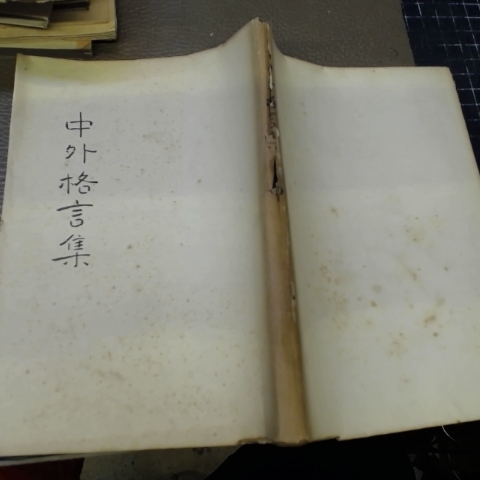 中外格言集